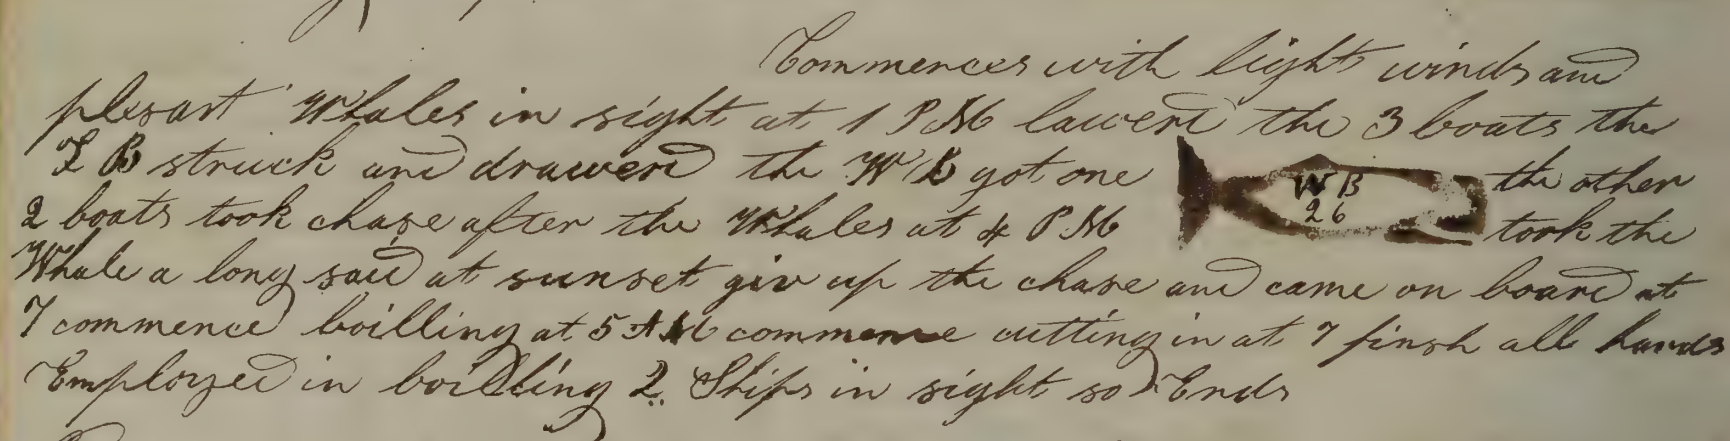 Commences with light winds and
plesant Whales in sight at 1 P M lawerd the 3 boats the
L B struck and drawerd the W B got one WB the other
2 boats took chase after the Whales at 4 P M 26 took the
Whale a long said at sunset giv up the chase and came on board at
7 commencd boilling at 5 A M commence cutting in at 7 finsh all hands
Employed in boilling 2 Ships in sight so Ends